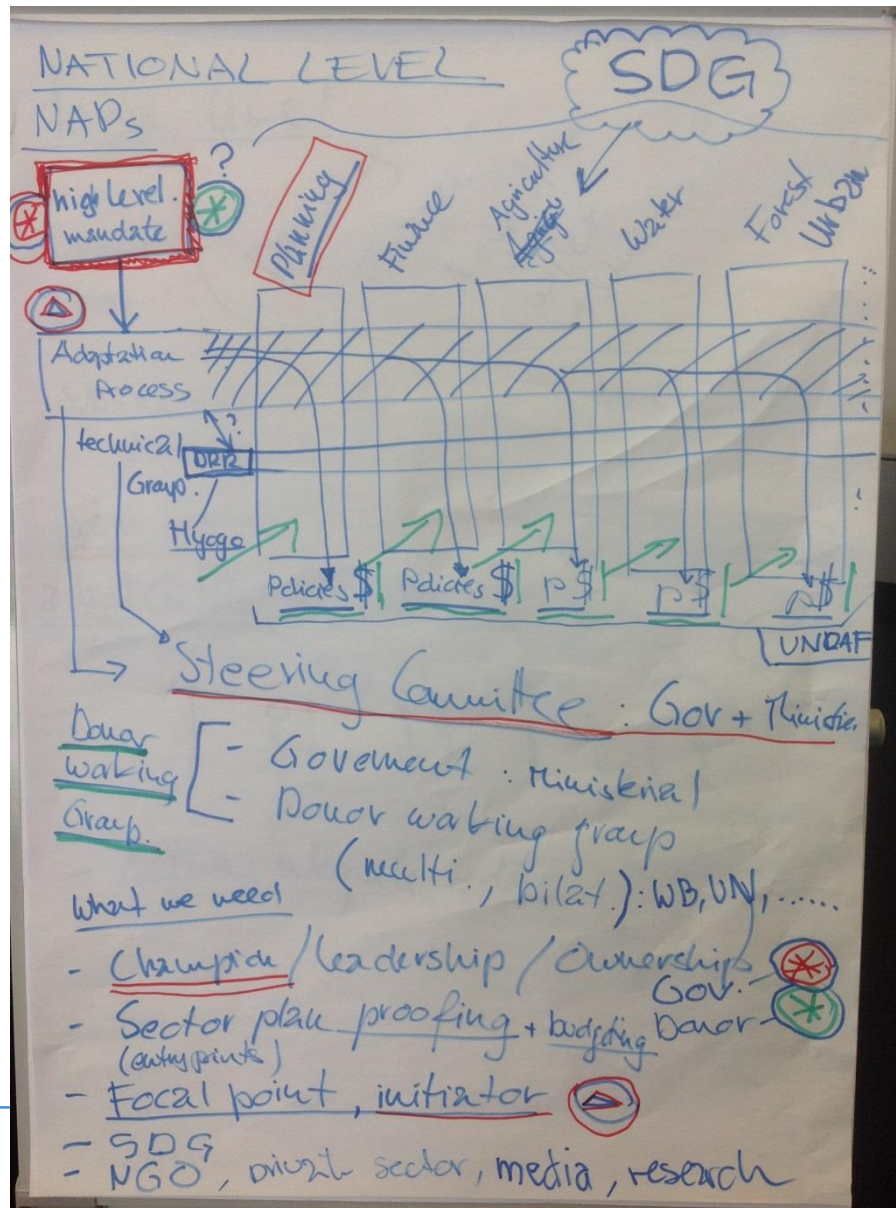 NATIONAL LEVEL
NAPs
SDG
high level.
mandate
?
Planning
Finance
Agriculture
Water
Forest
Urban
Adaptation
Process
technical
Group.
?
DRR
Hyogo
Policies $
Policies $
P $
P $
P $
UNDAF
Steering Committee : Gov +
Donor
working
Group.
- Goverment : Ministerial
- Donor working group
(multi., bilat.): WB, UN, ......
What we need
- Champion / leadership / Ownership
Gov.
- Sector plan proofing + budgeting
Donor
(entry points)
- Focal point, initiator
- SDG
- NGO, private sector, media, research